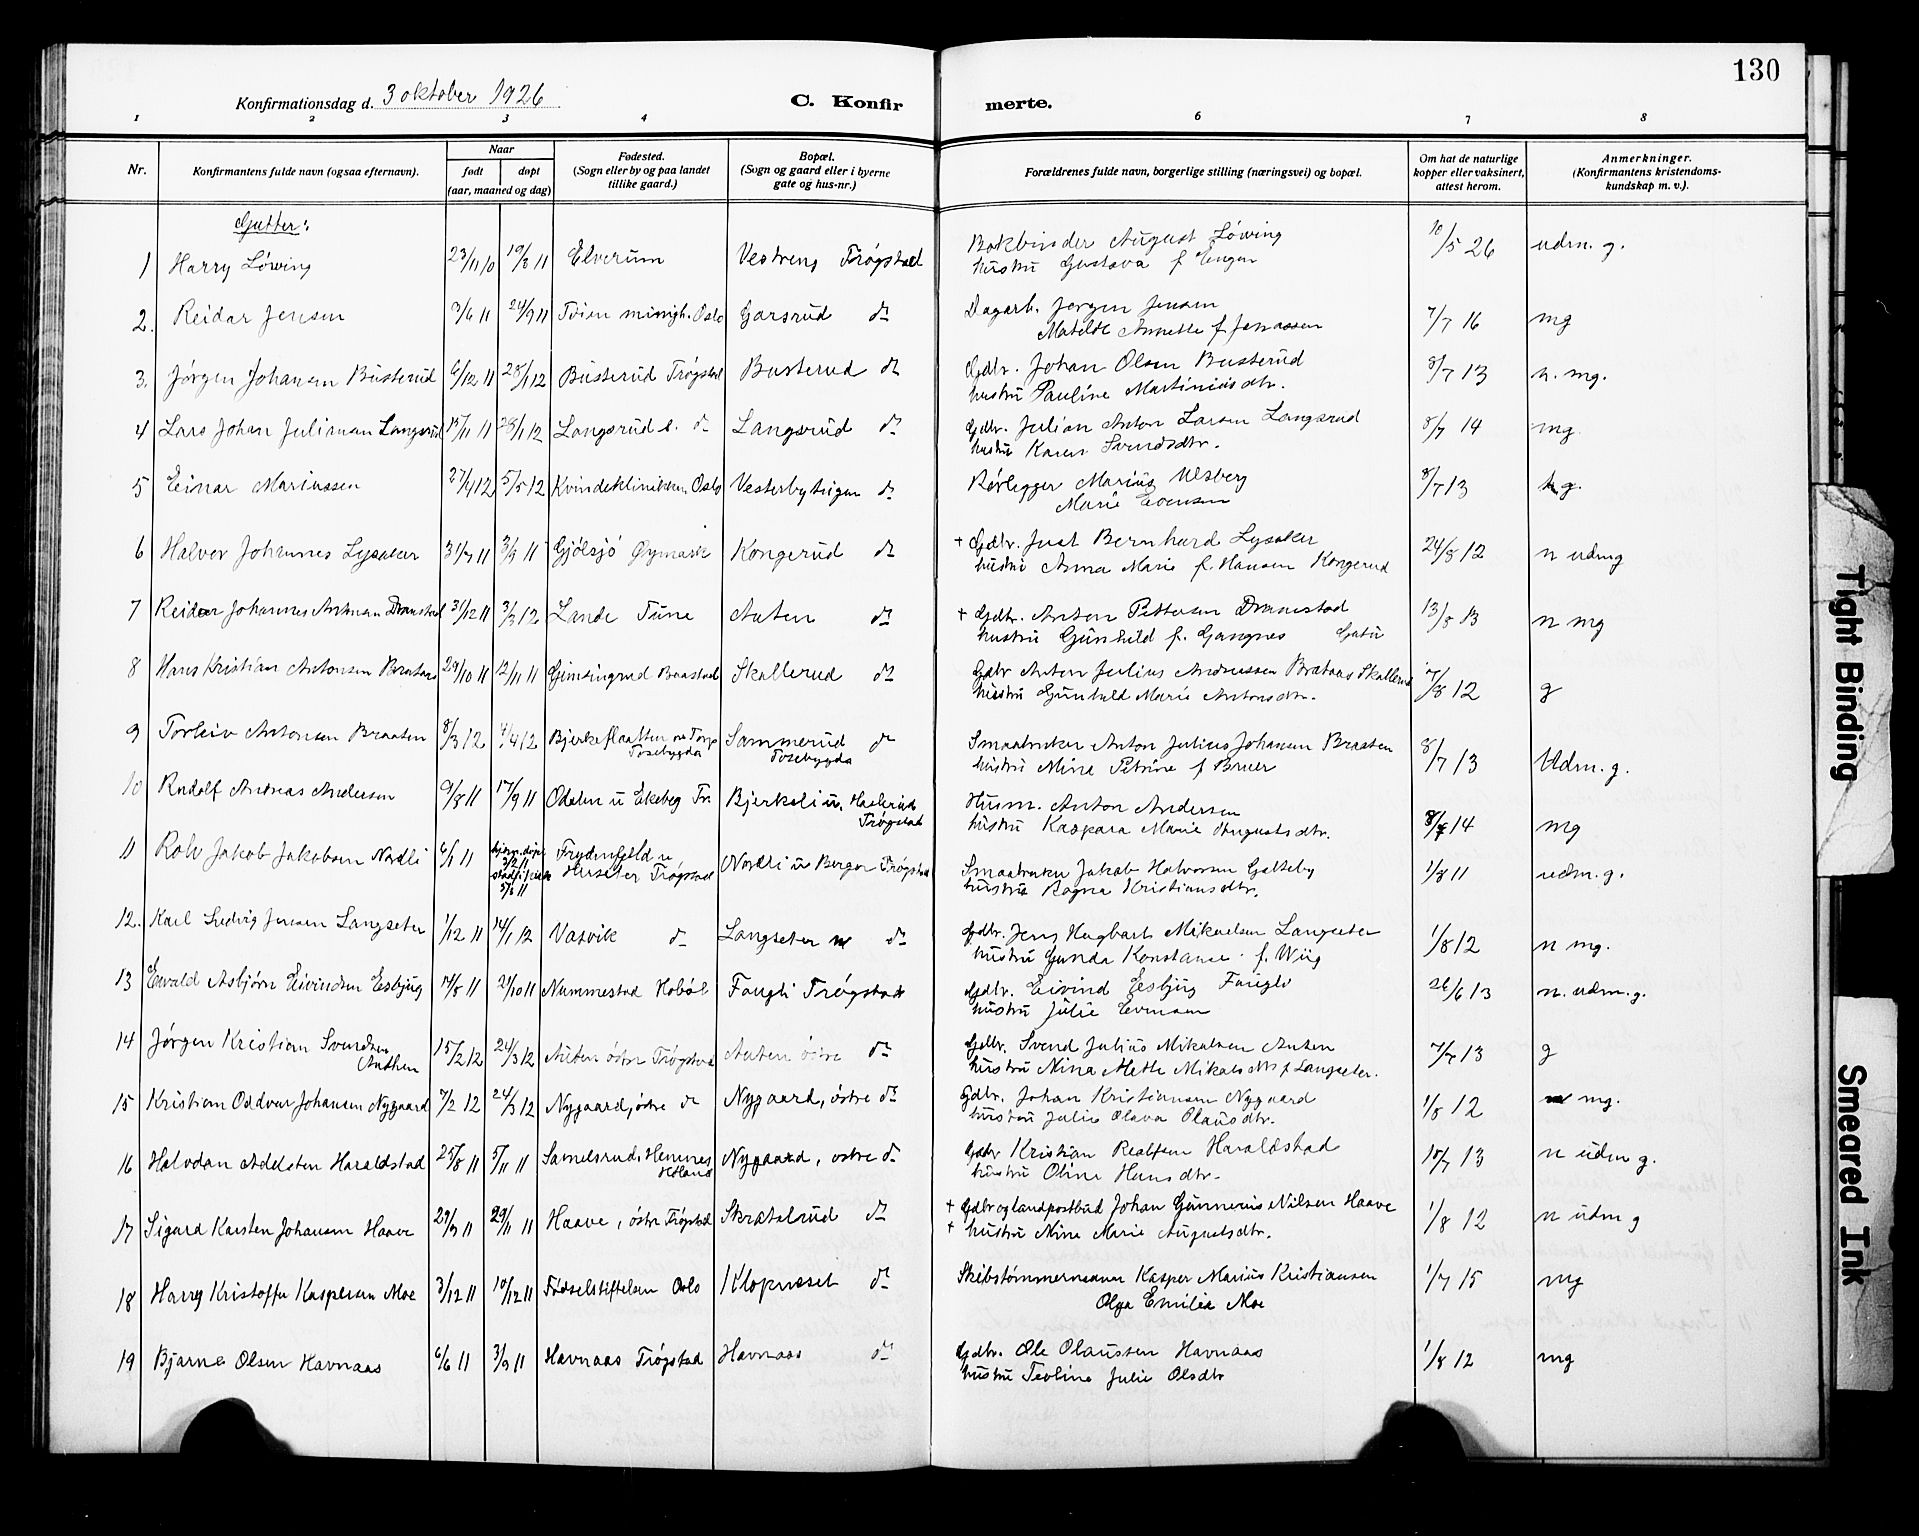 130
Konfirmationsdag d. 3 oktober 1926
C. Konfirmerte.
1 2 3 4 6 7 8
Nr.
Konfirmantens fulde navn (ogsaa efternavn).
Naar
født døpt
(aar, maaned og dag)
Fødested.
(Sogn eller by og paa landet
tillike gaard.)
Bopæl.
(Sogn og gaard eller i byerne
gate og hus-nr.)
Forældrenes fulde navn, borgerlige stilling (næringsvei) og bopæl.
Om hat de naturlige
kopper eller vaksinert,
attest herom.
Anmerkninger.
(Konfirmantens kristendoms-
kundskap m. v.).
Gutter:
1 Harry Löwing 23/11 10 19/3 11 Elverum Vestreng Trøgstad Bokbinder August Löwing 10/5 26 udm. g.
hustru Gustava f. Enger
2. Reidar Jensen 3/6 11 24/9 11 Tøien menigh. Oslo Garsrud do Dagarb. Jørgen Jensen 7/7 16 mg
Matilde Annette f. Jonassen
3. Jørgen Johansen Busterud 6/12 11 28/1 12 Busterud Trøgstad Busterud do Gdbr. Johan Olsen Busterud 8/7 13 n. mg.
hustru Pauline Martiniusdtr.
4 Lars Johan Juliansen Langsrud 15/11 11 28/1 12 Langsrud do Langsrud do Gdbr. Julian Anton Larsen Langsrud 8/7 14 mg
hustru Karen Svendsdtr.
5 Einar Mariussen 27/4 12 5/5 12 Kvindeklinikken Oslo Vesterby do Rørlegger Marius Ulsberg 8/7 13 g.
Marie Evensen
6 Halvor Johannes Lysaker 31/7 11 3/9 11 Gjølsjö Øymark Kongerud do + Gdbr. Just Bernhard Lysaker 24/8 12 n udm g
hustru Anna Marie f. Hansen Kongerud
7 Reidar Johannes Antonsen Dramstad 31/12 11 3/3 12 Lande Tune Auten do + Gdbr. Anton Pettersen Dramstad 13/8 13 n mg
hustru Gunhild f. Gangnes
8 Hans Kristian Antonsen Brataas 29/10 11 12/11 11 Gimsingrud Baastad Skallerud do Gdbr Anton Julius Andreassen Brataas Skallerud 7/8 12 g
hustru Gunhild Marie Antonsdtr.
9 Torleiv Antonsen Braaten 8/3 12 4/4 12 Bjerkeflaatten Torp Sommerud do Smaabruker Anton Julius Johansen Braaten 8/7 13 Udm. g.
Tosebygda Tosebygda hustru Mina Petrine f Bruer
10 Rudolf Andreas Andersen 9/8 11 17/9 11 Odalen u Ekeberg Tr. Bjerkeli u. Haslerud Husm. Anton Andersen 8/7 14 mg
Trøgstad hustru Kaspara Marie Augustsdtr.
11 Rolv Jakob Jakobsen Nordli 6/1 11 Frydenfeld u Nordli u Berger Trøgstad Smaabruker Jakob Halvorsen Galteby 1/8 11 udm. g.
Huseter Trøgstad hustru Ragna Kristiansdtr.
12. Karl Ludvig Jensen Langseter 1/12 11 14/1 12 Vasvik do Langseter do Gdbr. Jens Hagbart Mikaelsen Langseter 1/8 12 n mg.
hustru Gunda Konstance f. Wiig
13 Ewald Asbjørn Eivindsen Esbjug 14/8 11 21/10 11 Nummestad Hobøl Faugli Trøgstad Gdbr. Eivind Esbjug Faugli 26/6 13 n. udm. g.
hustru Julie Evensen
14 Jørgen Kristian Svendsen 15/2 12 24/3 12 Auten østre Trøgstad Auten östre do Gdbr. Svend Julius Mikalsen Auten 7/7 13 g
Authen hustru Nina Mette Mikalsdtr f Langseter.
15 Kristian Oddvar Johansen Nygaard 7/2 12 24/3 12 Nygaard, østre do Nygaard, østre do Gdbr. Johan Kristiansen Nygaard 1/8 12 mg.
hustru Julie Olava Olausdtr.
16 Halvdan Adelsten Haraldstad 25/8 11 5/11 11 Samelsrud, Hemnes Nygaard, østre do Gdbr Kristian Realfsen Haraldstad 10/7 13 n udm g.
Höland hustru Oline Hansdtr.
17 Sigurd Karsten Johansen Haave 29/9 11 29/11 11 Haave, østre Trøgstad Skratelrud do + Gdbr og landpostbud Johan Gunnerius Nilsen Haave 1/8 12 n udm g
+ hustru Nina Marie Augustsdtr.
18 Harry Kristoffer Kaspersen Moe 3/12 11 10/12 11 Fødselstiftelsen Oslo Klopneset do Skibstømmermann Kasper Marius Kristiansen 1/7 15 mg
Olga Emilie Moe
19 Bjarne Olsen Havnaas 6/6 11 3/9 11 Havnaas Trøgstad Havnaas do Gdbr. Ole Olaussen Havnaas 1/8 12 mg
hustru Teoline Julie Olsdtr
Tight Binding
Smeared Ink